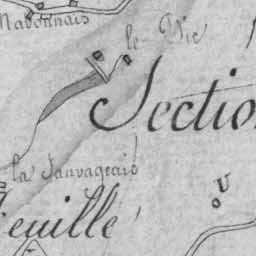 Madonnais
le Vic
Section
la Sauvageais
U
euille